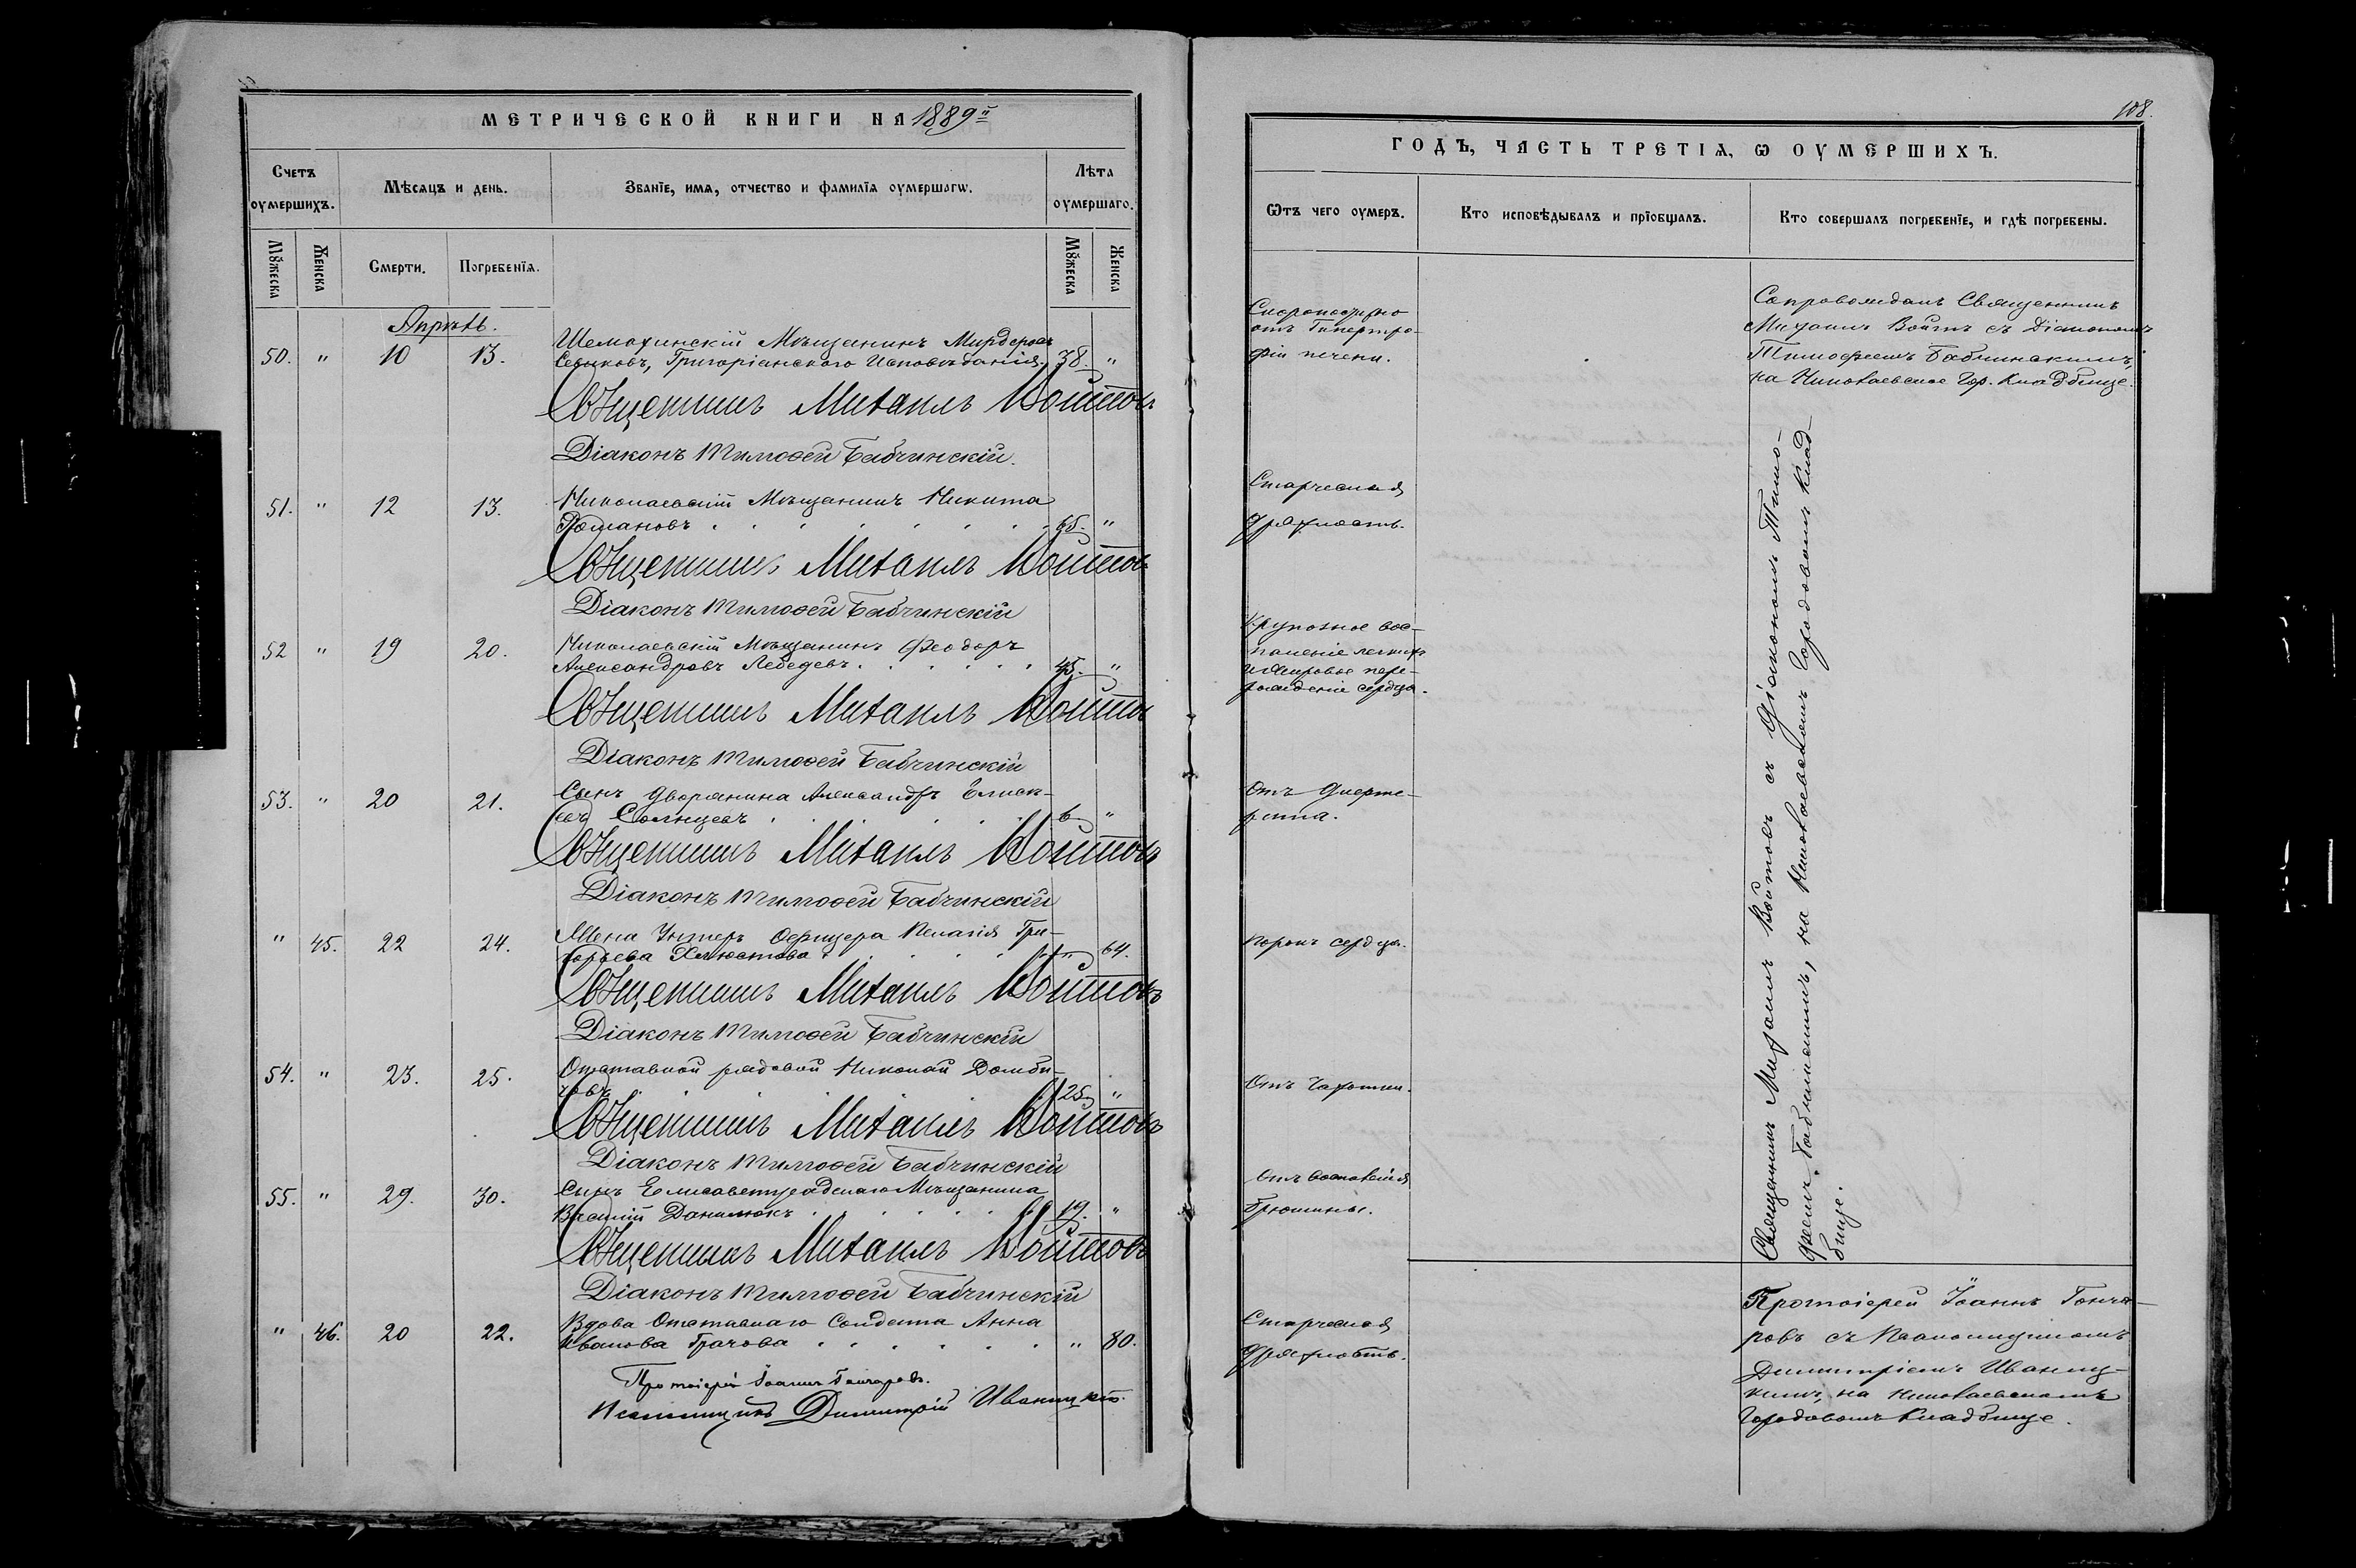 МЕТРИЧЕСКОЙ КНИГИ НА 1889й
Счетъ оумершихъ.
Мѣсяцъ и день.
Званіе, имя, отчество и фамилія оумершагѡ.
Лѣта оумершаго.
Мꙋжеска
Женска
Смерти.
Погребенія.
Мꙋжеска
Женска
Апрѣль.
50. " 10 13. Шемахинскій Мѣщанинъ
Григоріанскаго Исповѣданія. 38. "
Священникъ Михаилъ Войтовъ
Діаконъ Тимофей Бабчинскій.
51. " 12 13. Николаевскій Мѣщанинъ Никита
Романовъ . . . . . . . 65. "
Священникъ Михаилъ Войтовъ
Діаконъ Тимофей Бабчинскій
52 " 19 20. Николаевскій Мѣщанинъ Феодоръ
Александровъ Лебедевъ . . . . . . 45. "
Священникъ Михаилъ Войтовъ
Діаконъ Тимофей Бабчинскій
53. " 20 21. Сынъ дворянина Александръ
Солнцевъ . . . . . 6 "
Священникъ Михаилъ Войтовъ
Діаконъ Тимофей Бабчинскій
" 45. 22 24. Жена Унтеръ Офицера Пелагія Гри-
горьева Хлюстова . . . . . " 64.
Священникъ Михаилъ Войтовъ
Діаконъ Тимофей Бабчинскій
54. " 23. 25. Отставной рядовой Николай Домби-
ровъ . . . . . . 25 "
Священникъ Михаилъ Войтовъ
Діаконъ Тимофей Бабчинскій
55. " 29. 30. Сынъ Елисаветградскаго Мѣщанина
Василій Данилюкъ . . . . . . 19. "
Священникъ Михаилъ Войтовъ
Діаконъ Тимофей Бабчинскій
" 46. 20 22. Вдова Отставнаго Солдата Анна
Иванова Грачова . . . . . . " 80.
Протоіерей Іоаннъ Гончаровъ.
Псаломщикъ Димитрій Иваницкій.
108.
ГОДЪ, ЧАСТЬ ТРЕТІЯ, Ѡ ОУМЕРШИХЪ.
Ѿтъ чего оумеръ.
Кто исповѣдывалъ и пріобщалъ.
Кто совершалъ погребеніе, и гдѣ погребены.
Скоропостижно
отъ Гипертро-
фіи печени.
Сопровождалъ Священникъ
Михаилъ Войтъ съ Діакономъ
Тимофеемъ Бабчинскимъ,
на Николаевское Гор. Кладбище.
Старческая
дряхлость.
Крупозное вос-
паленіе легкихъ
и жировое пере-
рожденіе сердца.
Отъ дифте-
рита.
Порокъ сердца.
Отъ Чахотки.
Отъ воспаленія
брюшины.
Священникъ Михаилъ Войтовъ съ Діакономъ Тимо-
феемъ Бабчинскимъ, на Николаевскомъ Городовомъ Клад-
бище.
Старческая
дряхлость.
Протоіерей Іоаннъ Гонча-
ровъ съ Псаломщикомъ
Димитріемъ Иваниц-
кимъ, на Николаевскомъ
Городовомъ Кладбище.